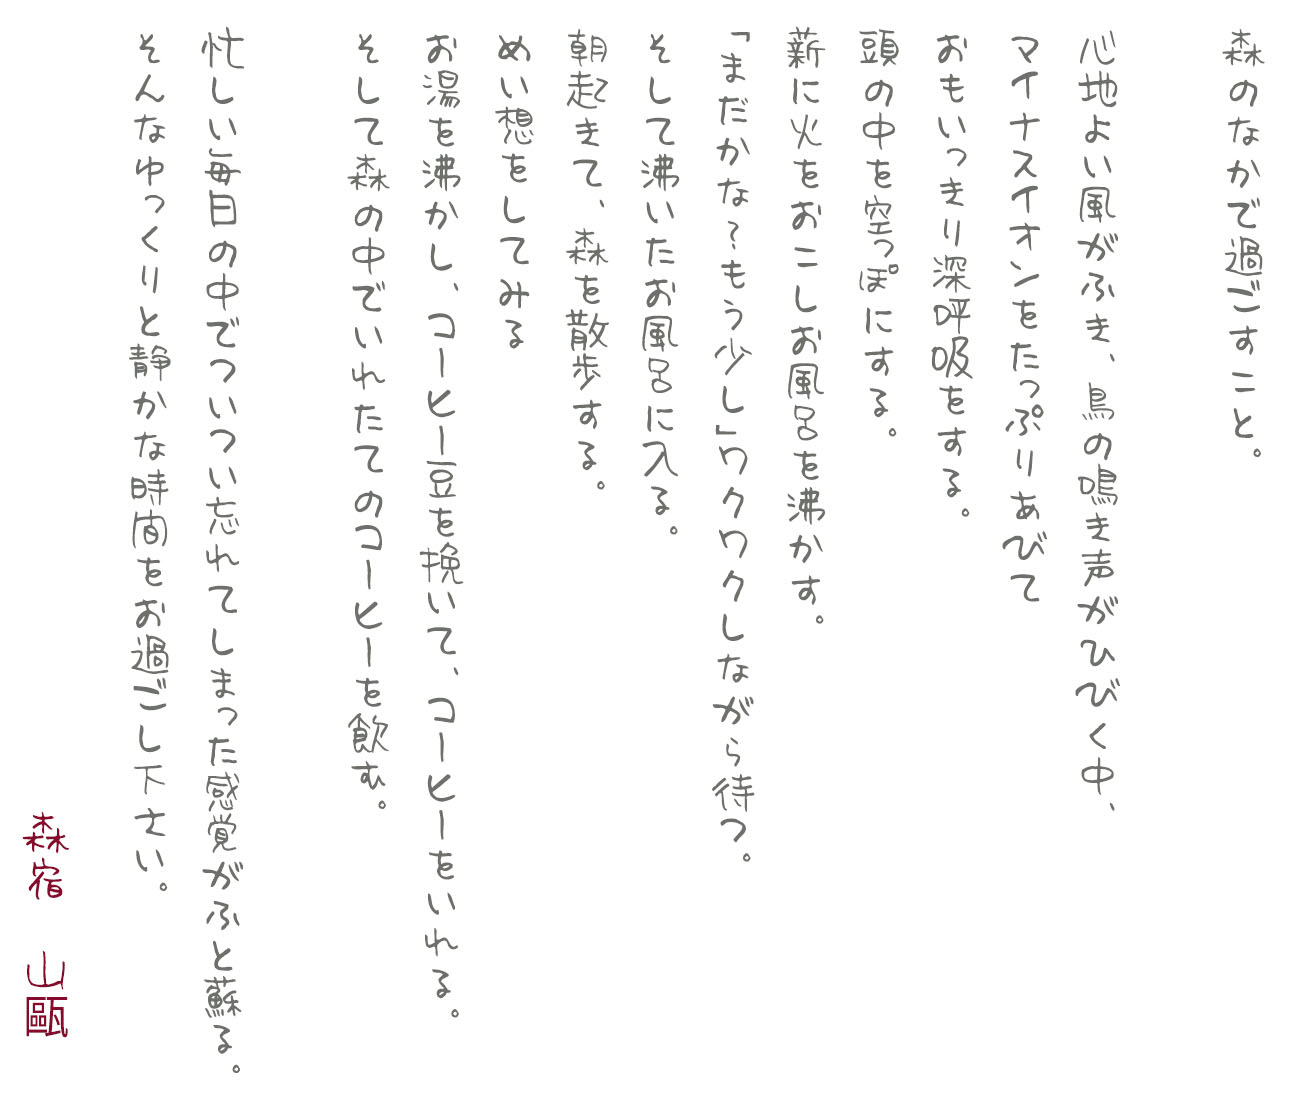 森のなかで過ごすこと。
心地よい風がふき、鳥の鳴き声がひびく中、
マイナスイオンをたっぷりあびて
おもいっきり深呼吸をする。
頭の中を空っぽにする。
薪に火をおこしお風呂を沸かす。
「まだかな？もう少し」ワクワクしながら待つ。
そして沸いたお風呂に入る。
朝起きて、森を散歩する。
めい想をしてみる
お湯を沸かし、コーヒー豆を挽いて、コーヒーをいれる。
そして森の中でいれたてのコーヒーを飲む。
忙しい毎日の中でついつい忘れてしまった感覚がふと蘇る。
そんなゆっくりと静かな時間をお過ごし下さい。
森宿　山甌